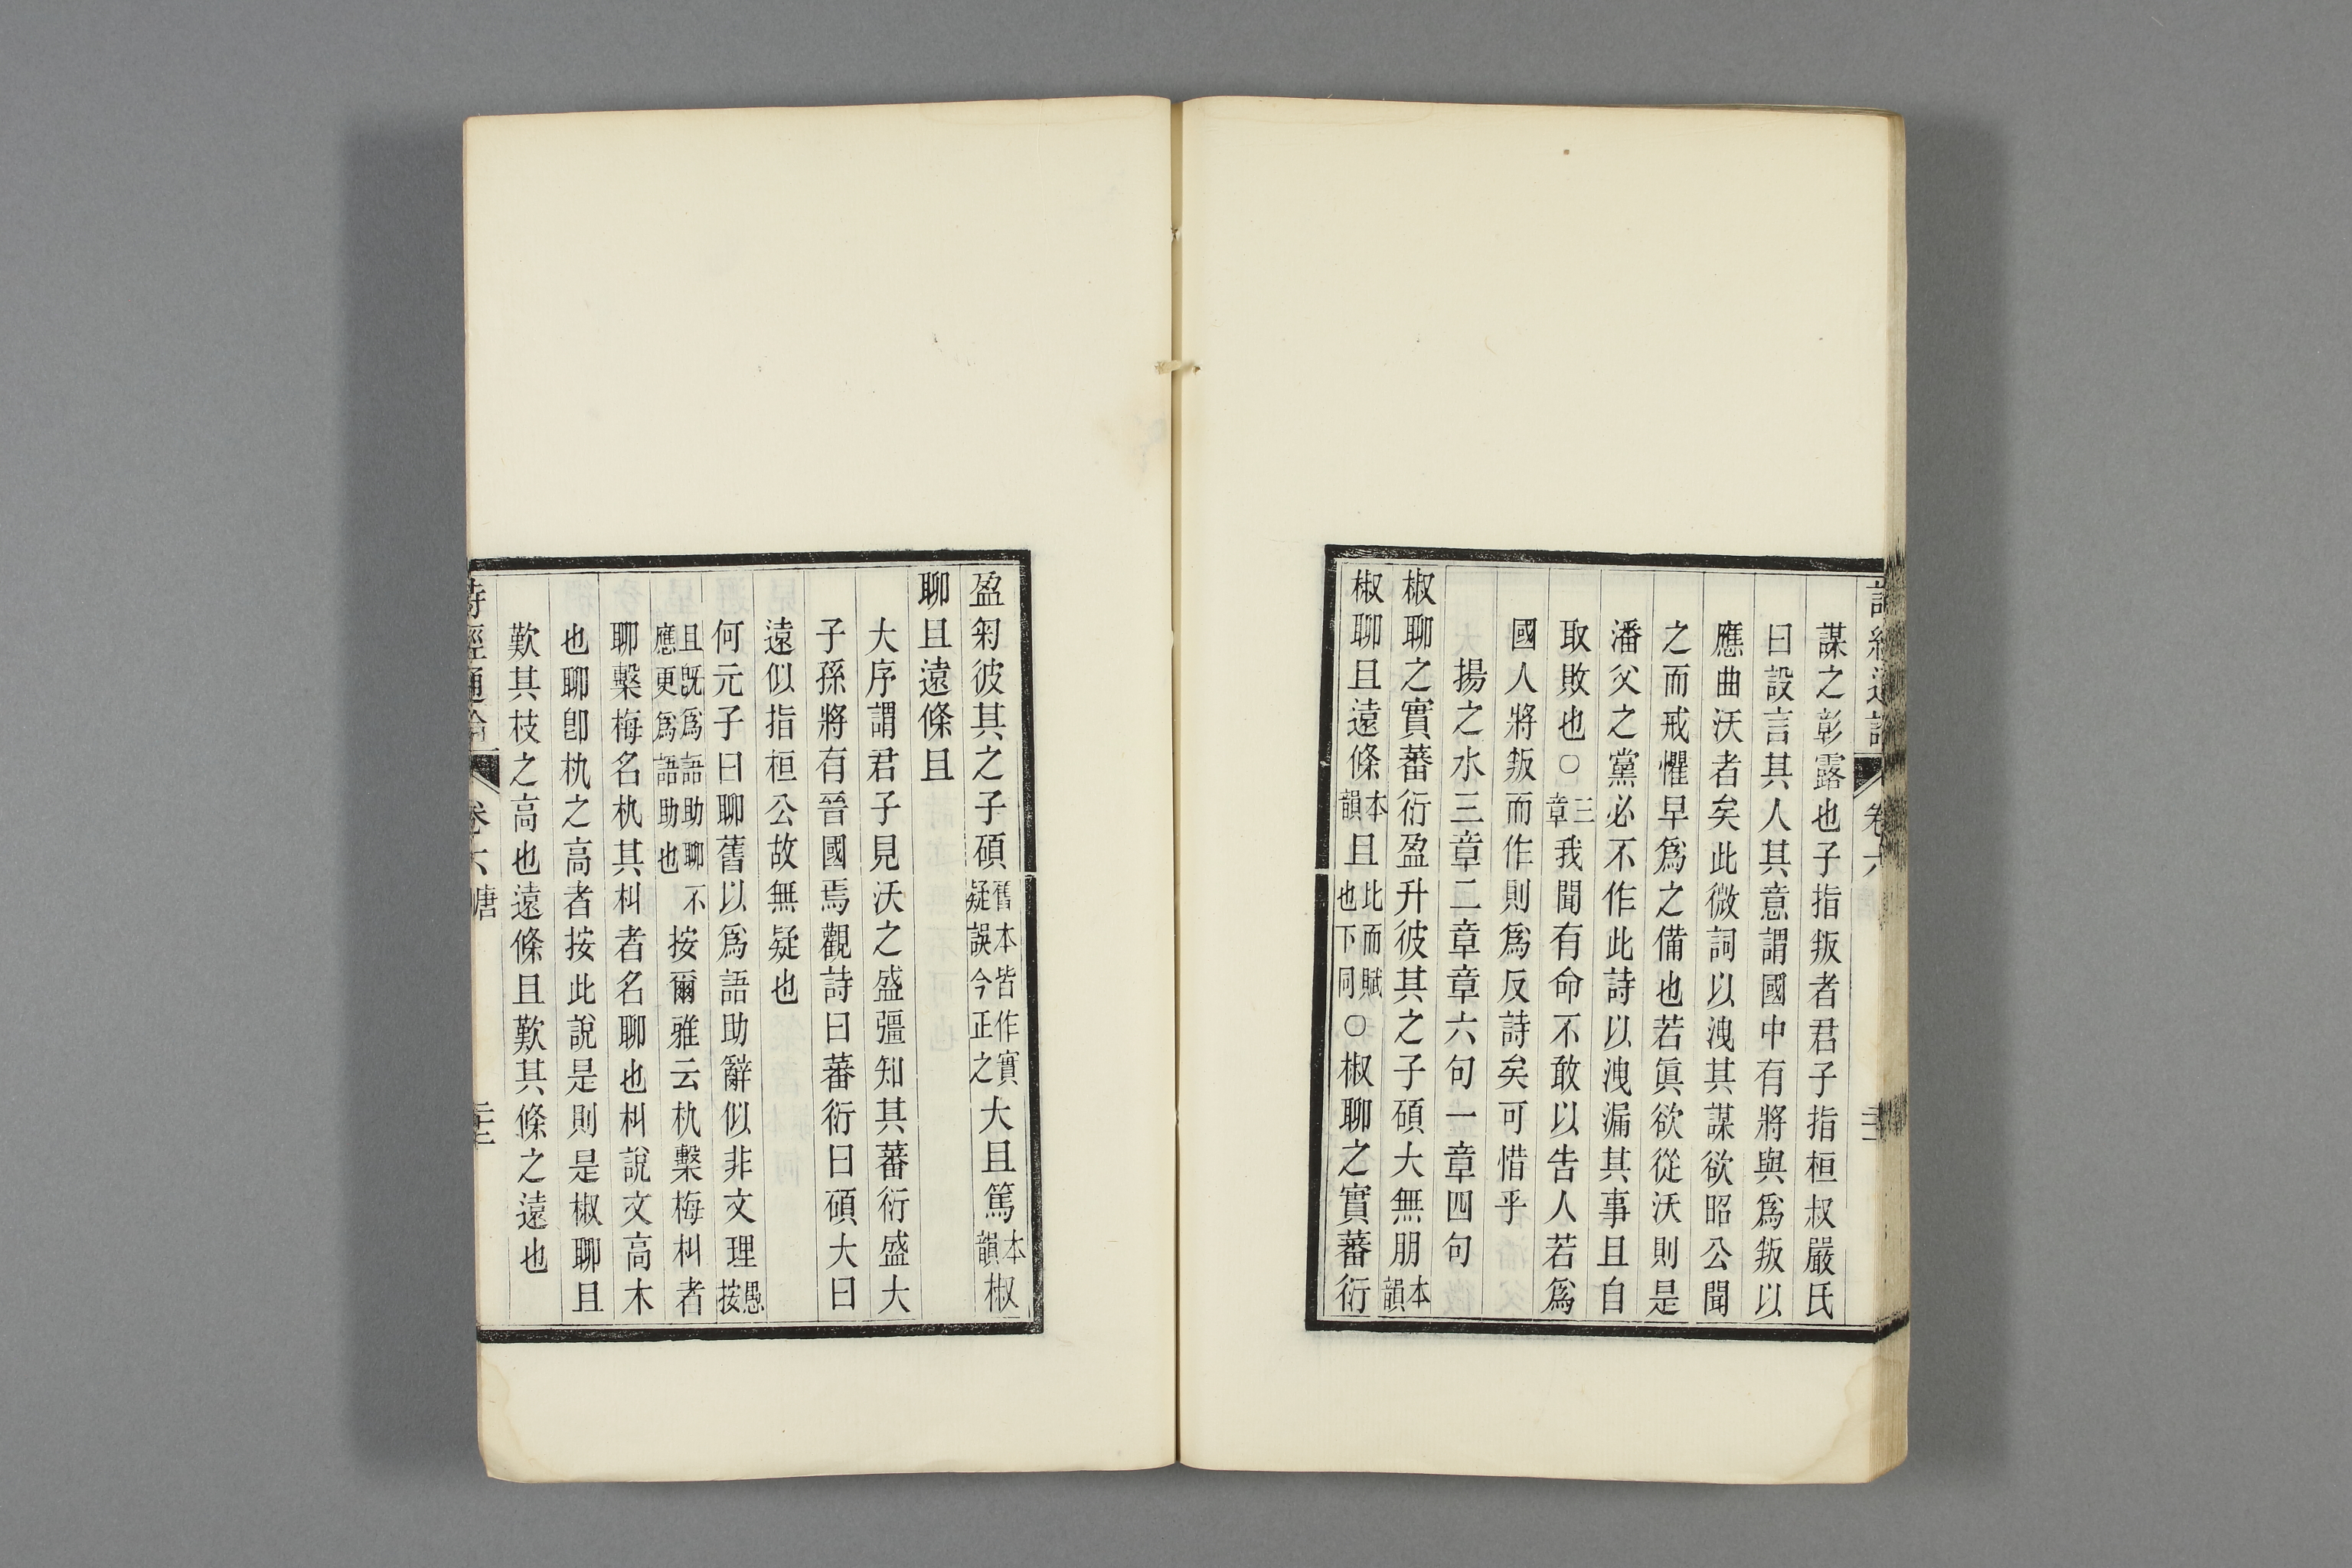 謀之彰露也子指叛者君子指桓叔嚴氏
曰設言其人其意謂國中有將與爲叛以
應曲沃者矣此微詞以洩其謀欲昭公聞
之而戒懼早爲之備也若眞欲從沃則是
潘父之黨必不作此詩以洩漏其事且自
取敗也○三章我聞有命不敢以告人若爲
國人將叛而作則爲反詩矣可惜乎
揚之水三章二章章六句一章四句
椒聊之實蕃衍盈升彼其之子碩大無朋本韻
椒聊且遠條本韻且此而賦也下同○椒聊之實蕃衍
盈匊彼其之子碩舊本皆作實疑誤今正之大且篤本韻椒
聊且遠條且
大序謂君子見沃之盛彊知其蕃衍盛大
子孫將有晉國焉觀詩曰蕃衍曰碩大曰
遠似指桓公故無疑也
何元子曰聊舊以爲語助辭似非文理愚按
且既爲語助聊不應更爲語助也按爾雅云朹檕梅朻者
聊檕梅名朹其朻者名聊也朻說文高木
也聊卽朹之高者按此說是則是椒聊且
歎其枝之高也遠條且歎其條之遠也
詩經通論 卷六 唐